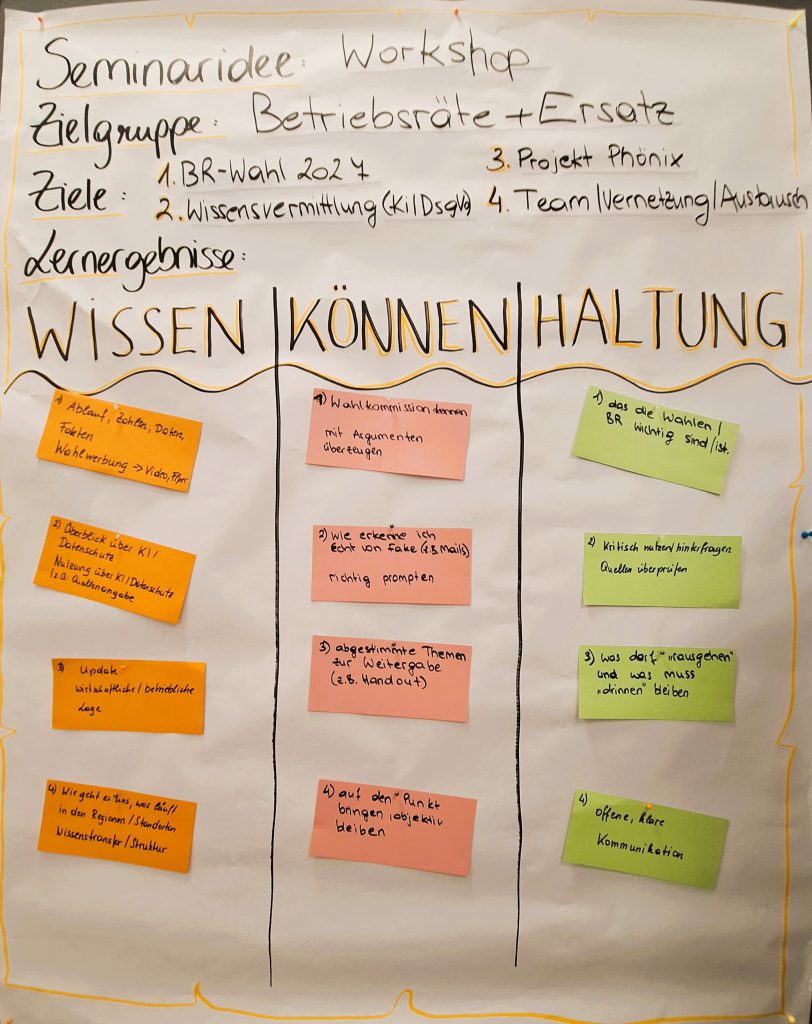 Seminaridee: Workshop
Zielgruppe: Betriebsräte + Ersatz
Ziele: 1. BR-Wahl 2027
2. Wissensvermittlung (Ki/DsgVo)
3. Projekt Phönix
4. Team/Vernetzung/Austausch
Lernergebnisse:
WISSEN
1) Ablauf, Zahlen, Daten,
Fakten
Wahlwerbung -> Video, Flyer
2) Überblick über KI/
Datenschutz
Nutzung über KI/Datenschutz
/z.B. Quellenangabe
3) Update
wirtschaftliche/betriebliche
Lage
4) Wie geht es uns, was läuft
in den Regionen/Standorten
Wissenstransfer/Struktur
KÖNNEN
1) Wahlkommission kennen
mit Argumenten
überzeugen
2) wie erkenne ich
Echt von Fake (z.B. Mails)
richtig prompten
3) abgestimmte Themen
zur Weitergabe
(z.B. Handout)
4) auf den Punkt
bringen, objektiv
bleiben
HALTUNG
1) das die Wahlen/
BR wichtig sind/ist.
2) Kritisch nutzen/hinterfragen
Quellen überprüfen
3) was darf "rausgehen"
und was muss
„drinnen" bleiben
4) offene, klare
Kommunikation